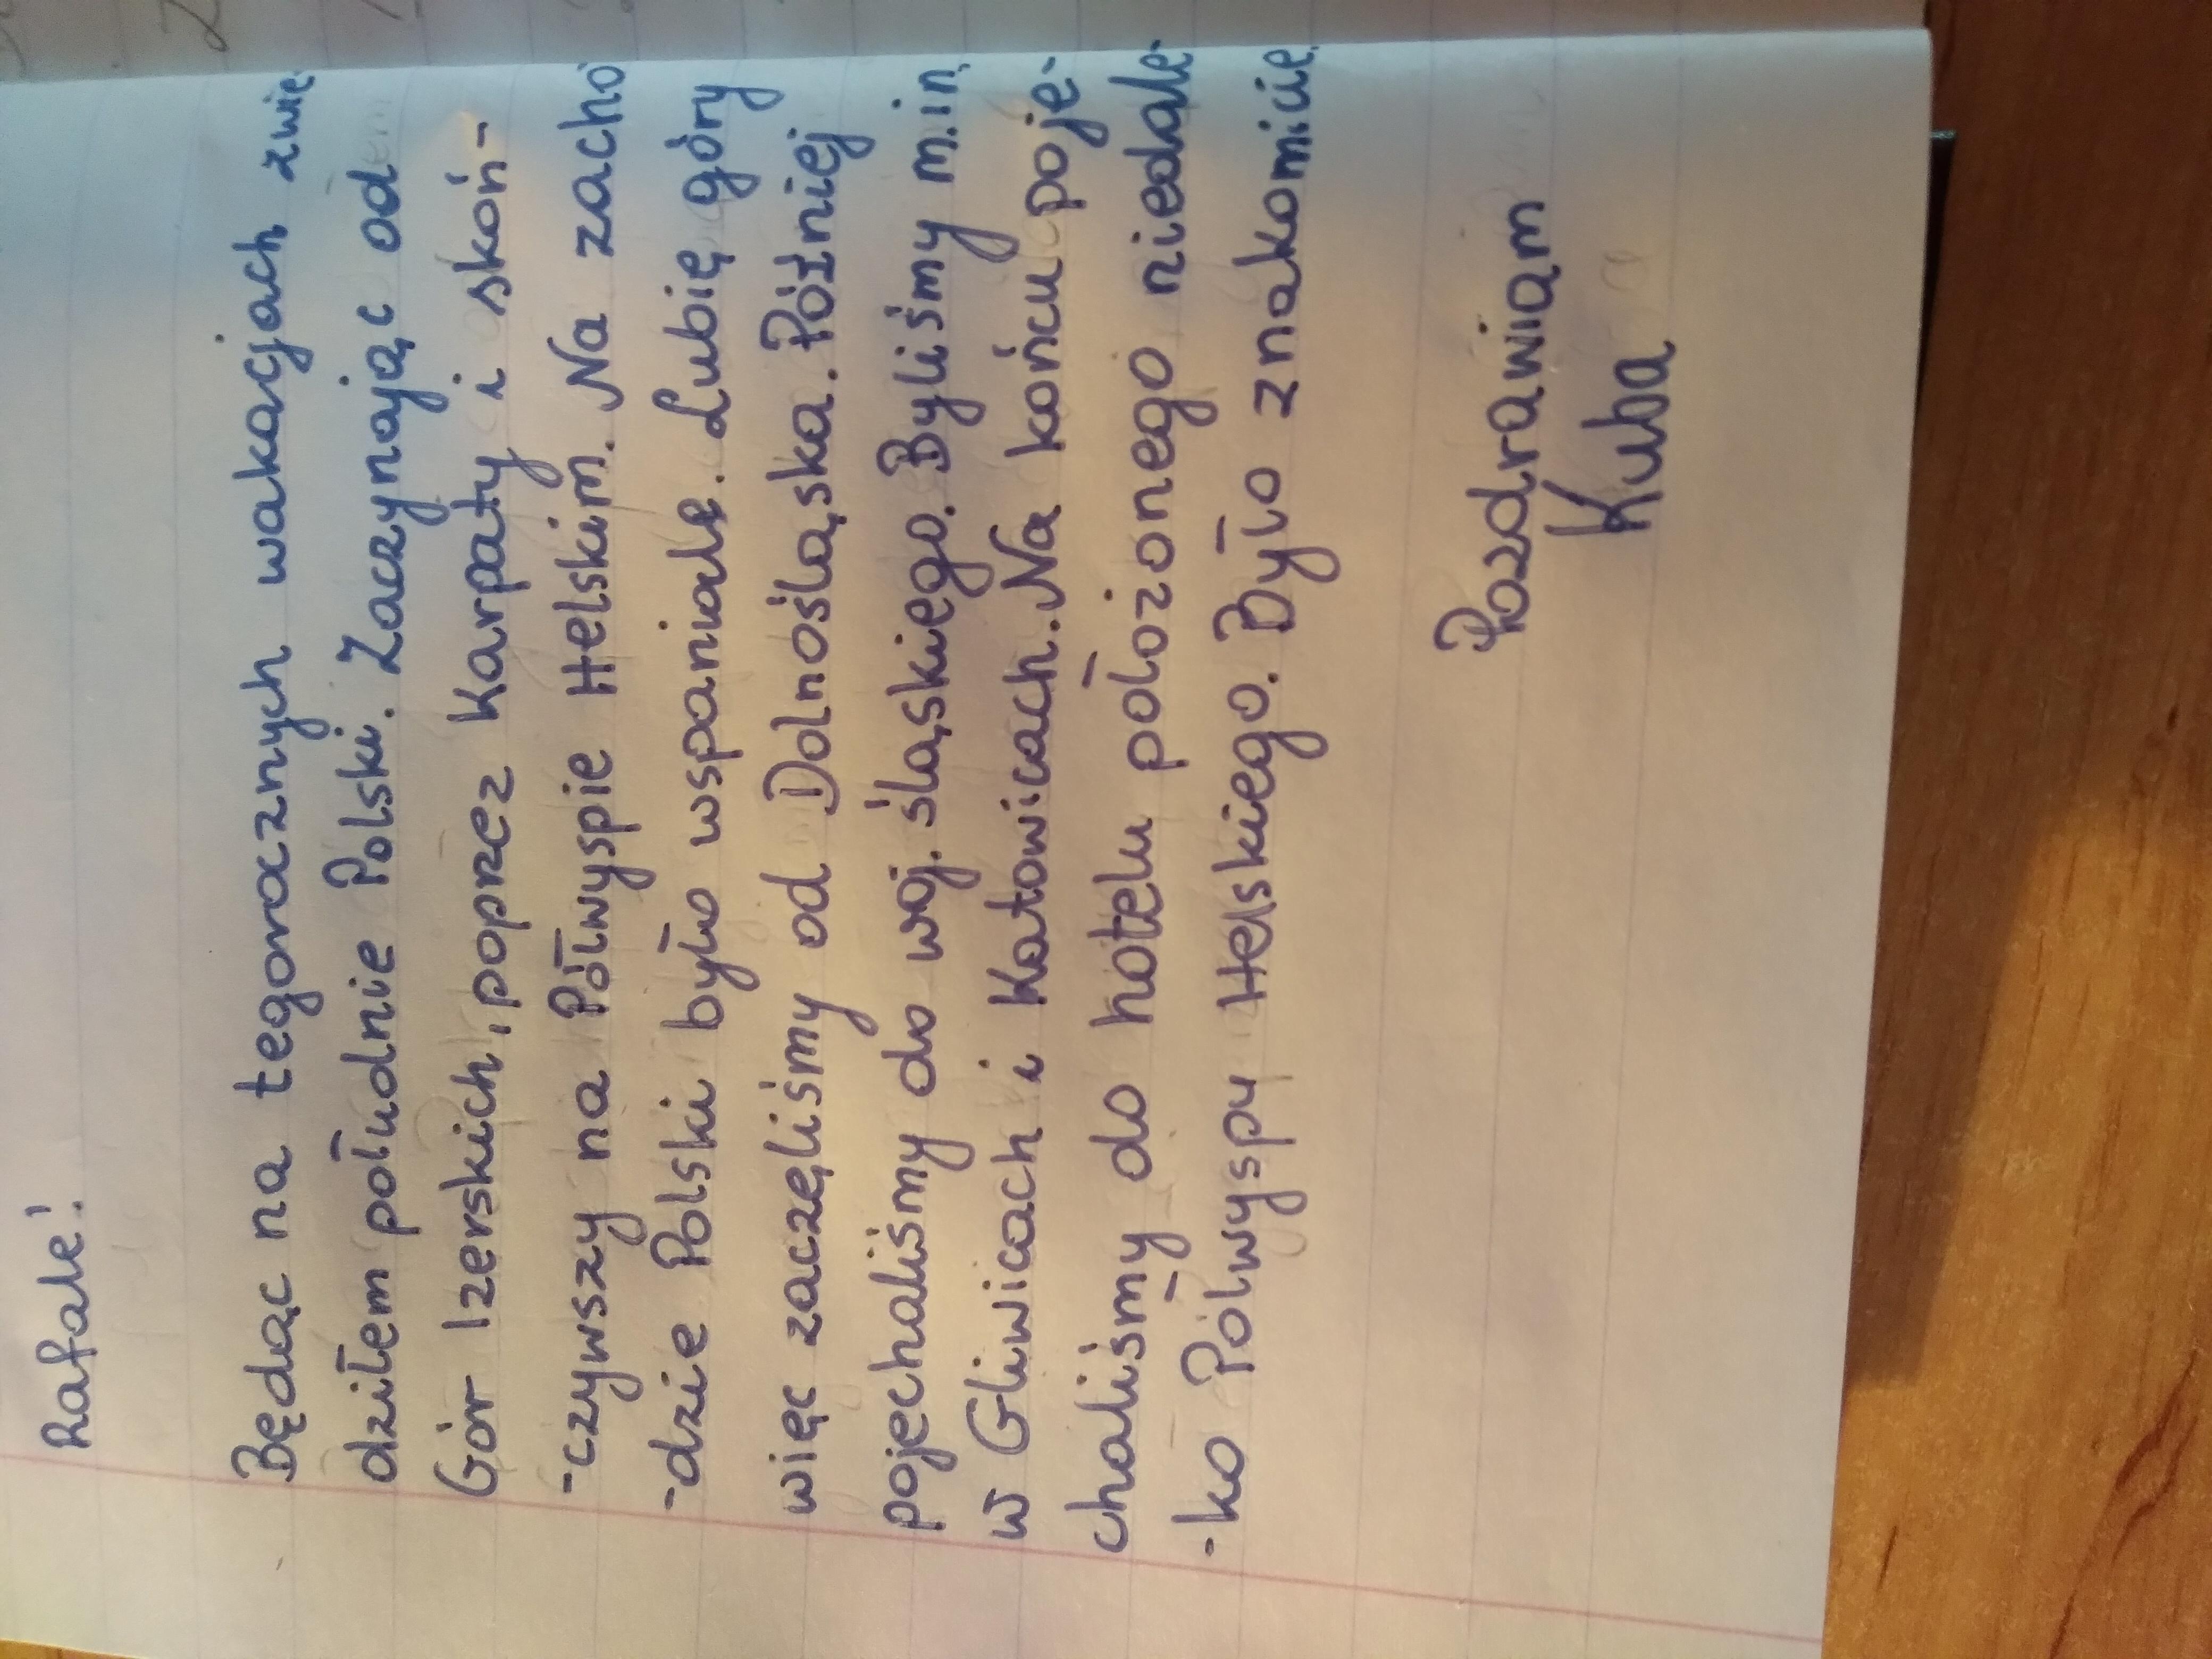 Rafale!
Będąc na tegorocznych wakacjach zwie-
dziłem południe Polski. Zaczynając od
Gór Izerskich, poprzez Karpaty i skoń-
-czywszy na Półwyspie Helskim. Na zacho
-dzie Polski było wspaniale. Lubię góry
więc zaczęliśmy od Dolnośląska. Później
pojechaliśmy do woj. śląskiego. Byliśmy m.in.
w Gliwicach i Katowicach. Na końcu poje-
chaliśmy do hotelu położonego niedale-
-ko Półwyspu Helskiego. Było znakomicie.
Pozdrawiam
Kuba